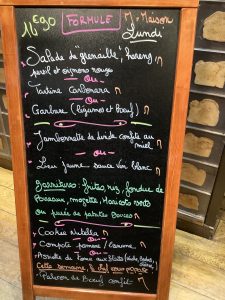 16€90 FORMULE M-Maison
Lundi
Salade de "grenaille", hareng
persil et oignons rouges
Ou
Tartine Carbonara
Ou
Garbure (légumes et bœuf)
Jambonnette de dinde confite au
miel
Ou
Lieu jaune sauce vin blanc
Garnitures: frites, riz, fondue de
Poireaux, mogette, Haricots verts
ou purée de patates Douces
Cookie Nutella
Ou
Compote pomme/banane
Ou
Assiette de
Cette semaine, le chef vous propose
de Bœuf confit